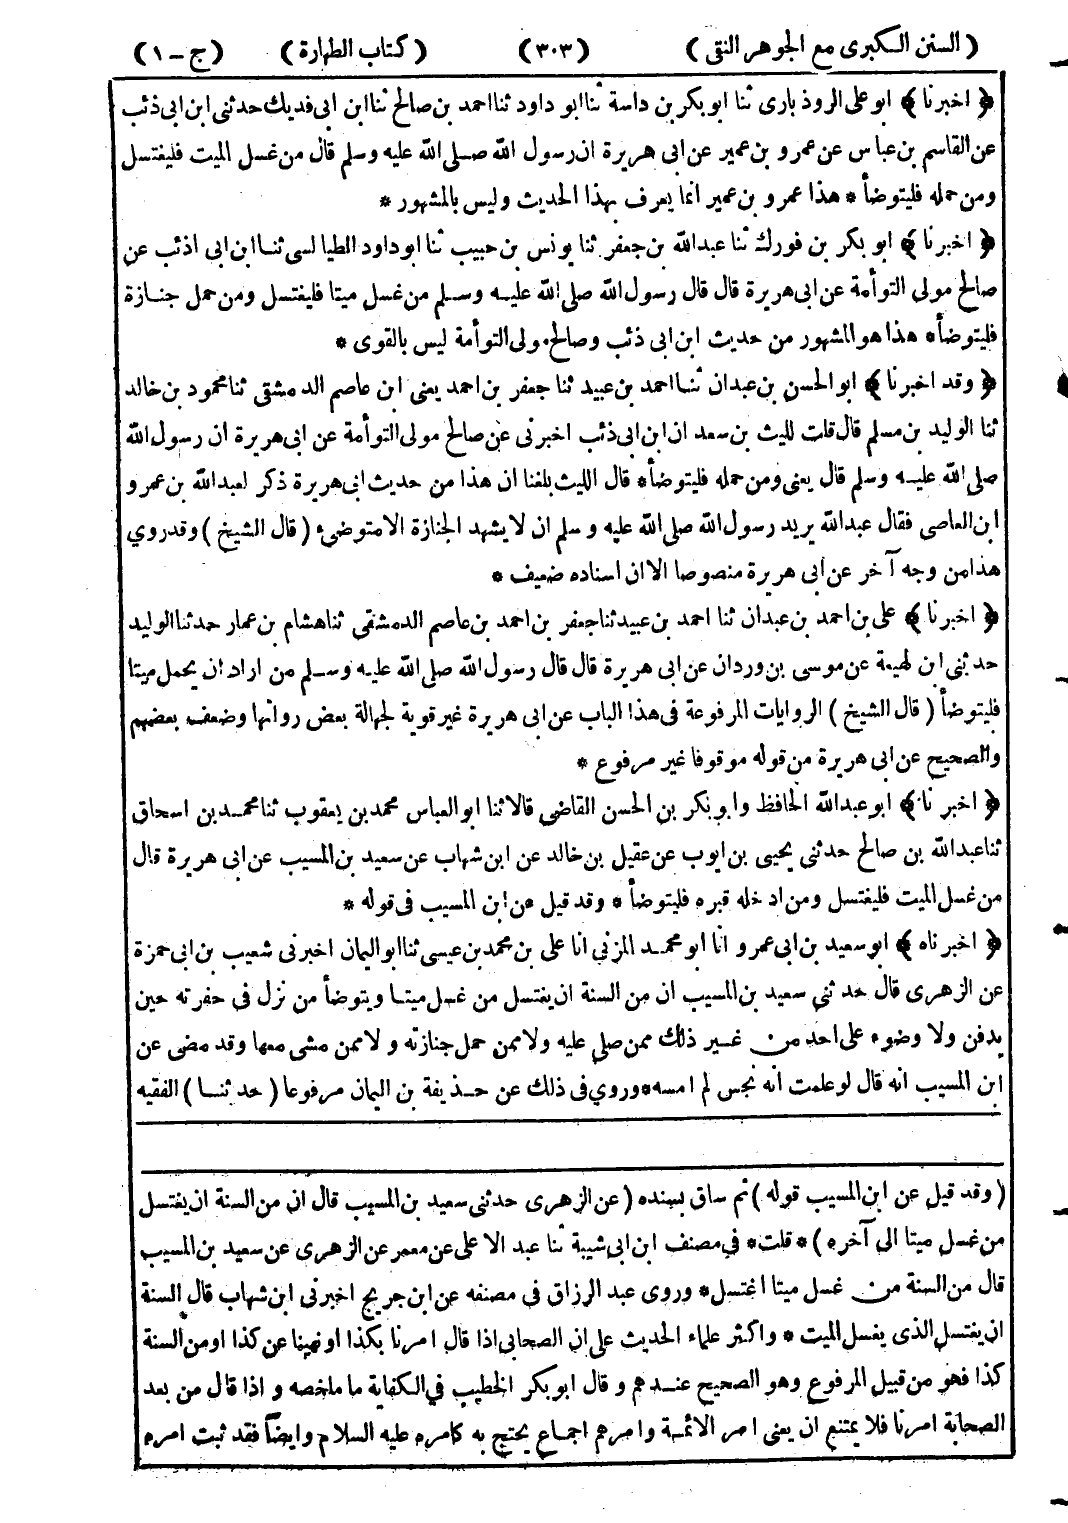 ( السنن الكبرى مع الجوهر النقى ) ( ٣٠٣ ) ( كتاب الطهارة ) ( ج - ١ )
﴿ اخبرنا ﴾ ابو على الروذبارى ثنا ابو بكر بن داسة ثنا ابو داود ثنا احمد بن صالح ثنا ابن ابى فديك حدثنى ابن ابى ذئب
عن القاسم بن عباس عن عمرو بن عمير عن ابى هريرة ان رسول الله صلى الله عليه وسلم قال من غسل الميت فليغتسل
ومن حمله فليتوضأ * هذا عمرو بن عمير انما يعرف بهذا الحديث وليس بالمشهور *
﴿ اخبرنا ﴾ ابو بكر بن فورك ثنا عبدالله بن جعفر ثنا يونس بن حبيب ثنا ابو داود الطيالسى ثنا ابن ابى اذئب عن
صالح مولى التوأمة عن ابى هريرة قال قال رسول الله صلى الله عليه وسلم من غسل ميتا فليغتسل ومن حمل جنازة
فليتوضأ * هذا هو المشهور من حديث ابن ابى ذئب وصالح مولى التوأمة ليس بالقوى *
﴿ وقد اخبرنا ﴾ ابو الحسن بن عبدان ثنا احمد بن عبيد ثنا جعفر بن احمد يعنى ابن عاصم الدمشقى ثنا محمود بن خالد
ثنا الوليد بن مسلم قال قلت لليث بن سعد ان ابن ابى ذئب اخبرنى عن صالح مولى التوأمة عن ابى هريرة ان رسول الله
صلى الله عليه وسلم قال يعنى ومن حمله فليتوضأ * قال الليث بلغنا ان هذا من حديث ابى هريرة ذكر لعبدالله بن عمرو
ابن العاصى فقال عبدالله يريد رسول الله صلى الله عليه وسلم ان لا يشهد الجنازة الا متوضئ ( قال الشيخ ) وقدروي
هذا من وجه آخر عن ابى هريرة منصوصا الا ان اسناده ضعيف *
﴿ اخبرنا ﴾ على بن احمد بن عبدان ثنا احمد بن عبيد ثنا جعفر بن احمد بن عاصم الدمشقى ثنا هشام بن عمار حدثنا الوليد
حدثنى ابن لهيعة عن موسى بن وردان عن ابى هريرة قال قال رسول الله صلى الله عليه وسلم من اراد ان يحمل ميتا
فليتوضأ ( قال الشيخ ) الروايات المرفوعة فى هذا الباب عن ابى هريرة غير قوية لجهالة بعض رواتها وضعف بعضهم
والصحيح عن ابى هريرة من قوله موقوفا غير مرفوع *
﴿ اخبرنا ﴾ ابو عبدالله الحافظ وابو بكر بن الحسن القاضى قالا ثنا ابو العباس محمد بن يعقوب ثنا محمد بن اسحاق
ثنا عبدالله بن صالح حدثنى يحيى بن ايوب عن عقيل بن خالد عن ابن شهاب عن سعيد بن المسيب عن ابى هريرة قال
من غسل الميت فليغتسل ومن ادخله قبره فليتوضأ * وقد قيل عن ابن المسيب فى قوله *
﴿ اخبرناه ﴾ ابو سعيد بن ابى عمرو انا ابو محمد المزنى انا على بن محمد بن عيسى ثنا ابو اليمان اخبرنى شعيب بن ابى حمزة
عن الزهرى قال حدثنى سعيد بن المسيب ان من السنة ان يغتسل من غسل ميتا ويتوضأ من نزل فى حفرته حين
يدفن ولا وضوء على احد من غير ذلك ممن صلى عليه ولا ممن حمل جنازته ولا ممن مشى معها وقد مضى عن
ابن المسيب انه قال لو علمت انه نجس لم امسه * وروي فى ذلك عن حذيفة بن اليمان مرفوعا ( حدثنا ) الفقيه
( وقد قيل عن ابن المسيب قوله ) ثم ساق بسنده ( عن الزهرى حدثنى سعيد بن المسيب قال ان من السنة ان يغتسل
من غسل ميتا الى آخره ) * قلت * في مصنف ابن ابى شيبة ثنا عبد الاعلى عن معمر عن الزهرى عن سعيد بن المسيب
قال من السنة من غسل ميتا اغتسل * وروى عبد الرزاق فى مصنفه عن ابن جريج اخبرنى ابن شهاب قال السنة
ان يغتسل الذى يغسل الميت * واكثر علماء الحديث على ان الصحابى اذا قال امرنا بكذا او نهينا عن كذا او من السنة
كذا فهو من قبيل المرفوع وهو الصحيح عندهم وقال ابو بكر الخطيب في الكفاية ما ملخصه و اذا قال من بعد
الصحابة امرنا فلا يمتنع ان يعنى امر الائمة وامرهم اجماع يحتج به كامره عليه السلام وايضا فقد ثبت امره